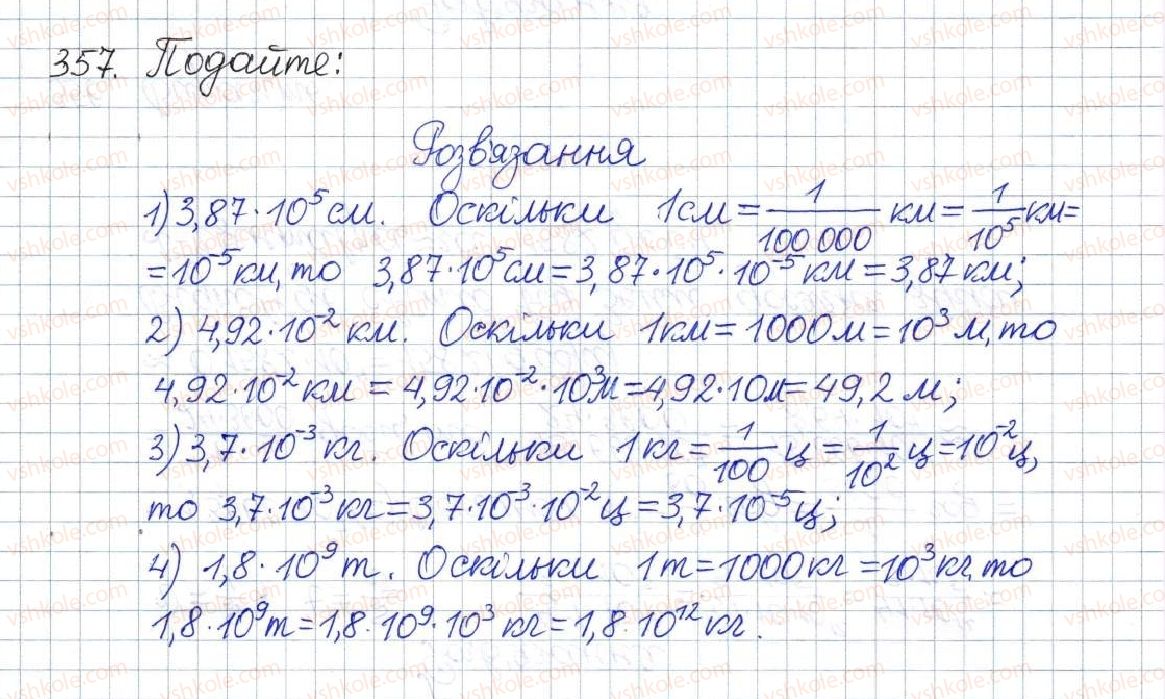 357. Подайте:
Розв'язання
1) 3,87·10⁵ см. Оскільки 1см = 1/100 000 км = 1/10⁵ км =
= 10⁻⁵ км, то 3,87·10⁵ см = 3,87·10⁵·10⁻⁵ км = 3,87 км;
2) 4,92·10⁻² км. Оскільки 1км = 1000м = 10³ м, то
4,92·10⁻² км = 4,92·10⁻²·10³м = 4,92·10м = 49,2 м;
3) 3,7·10⁻³ кг. Оскільки 1кг = 1/100 ц = 1/10² ц = 10⁻² ц,
то 3,7·10⁻³ кг = 3,7·10⁻³·10⁻² ц = 3,7·10⁻⁵ ц;
4) 1,8·10⁹ т. Оскільки 1т = 1000кг = 10³ кг, то
1,8·10⁹ т = 1,8·10⁹·10³ кг = 1,8·10¹² кг.
vshkole.com